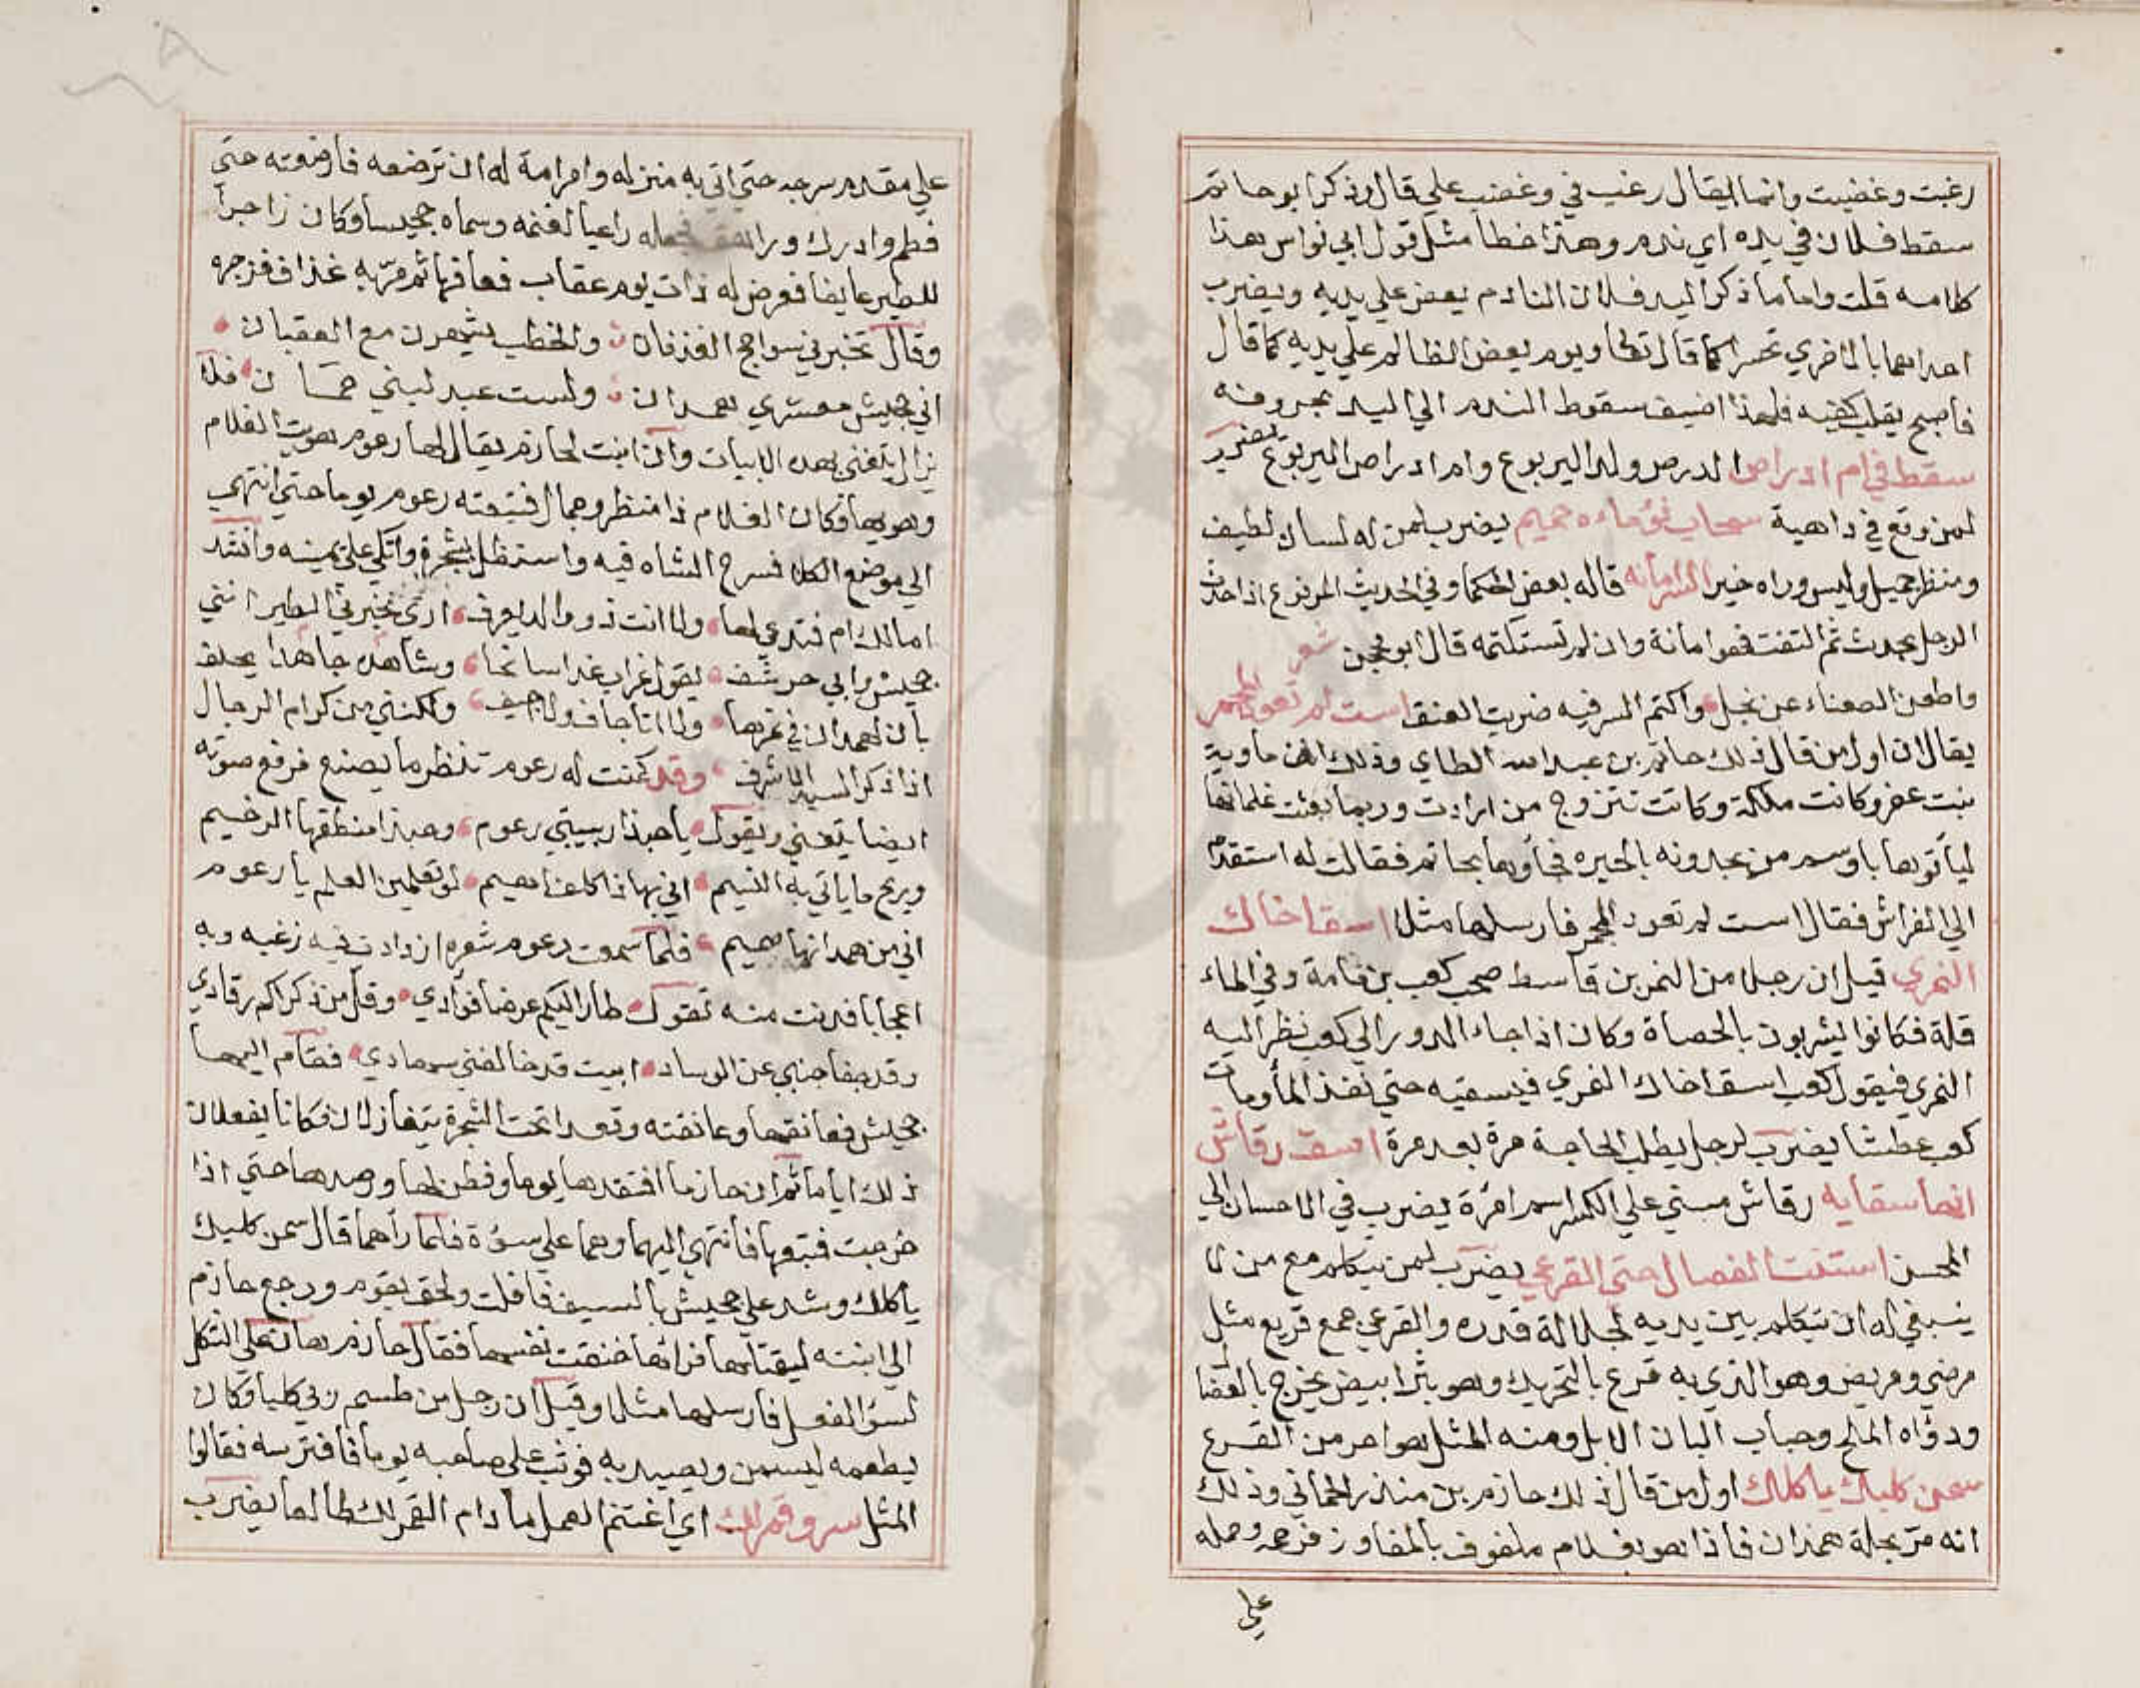 رغبت وغضبت وانما يقال رغب في وغضب علي قال وذكر ابو حاتم
سقط فلان في يده اي ندم وهذا خطا مثل قول ابي نواس هذا
كلامه قلت واما ذكر اليد فلان النادم يعض علي يديه ويضرب
احداهما بالاخري تحسرا كما قال تعالي ويوم يعض الظالم علي يديه كما قال
فاصبح يقلب كفيه فلهذا اضيف سقوط الندم الي اليد بحروفه
سقط في ام ادراص الدرص ولد اليربوع وام ادراص اليربوع يضرب
لمن وقع في داهية سحاب نؤ ماءه حميم يضرب لمن له لسان لطيف
ومنظر جميل وليس وراه خير السر امانه قاله بعض الحكما وفي الحديث المرفوع اذا حدث
الرجل بحديث ثم التفت فهو امانة وان لم تستكتمه قال ابو محجن شعر
واطعن الطعناء عن نجل واكتم السر فيه ضربت العنق است لم تعود المجمر
يقال ان اول من قال ذلك حاتم بن عبد الله الطاي وذلك ان ماوية
بنت عفزر كانت ملكة وكانت تتزوج من ارادت وربما بعثت غلمانها
لياتوها باوسم من يجدونه بالحيره فجاؤها بحاتم فقالت له استقدم
الي الفراش فقال است لم تعود المجمر فارسلها مثلا اسق اخاك
النمري قيل ان رجلا من النمر بن قاسط صحب كعب بن مامة وفي الماء
قلة فكانوا يشربون بالحصاة وكان اذا جاء الدور الي كعب نظر اليه
النمري فيقول كعب اسق اخاك النمري فيسقيه حتي نفذ الما ومات
كعب عطشا يضرب لرجل يطلب الحاجة مرة بعد مرة اسق رقاش
انها سقايه رقاش مبني علي الكسر اسم امرٔة يضرب في الاحسان الي
المحسن استنت الفصال حتي القرعي يضرب لمن يتكلم مع من لا
ينبغي له ان يتكلم بين يديه لجلالة قدره والقرعي جمع قريع مثل
مرضي ومريض وهو الذي به قرع بالتحريك وهو بثر ابيض يخرج بالفصال
ودؤاه الملح وحباب البان الابل ومنه المثل هو احر من القرع
سمن كلبك ياكلك اول من قال ذلك حازم بن منذر الحماني وذلك
انه مر بمحلة همدان فاذا هو بغلام ملفوف بالمفاوز فرحمه وحمله
علي
علي مقدم سرجه حتي اتي به منزله وامر امة له ان ترضعه فارضعته حتي
فطم وادرك وراهق فجعله راعيا لغنمه وسماه جحيشا وكان زاجرا
للطير عايفا فعرض له ذات يوم عقاب فعافها ثم مر به غداف فزجره
وقال تخبرني سواجج الغدفان والخطب يشهدن مع العقبان
اني جحيش معشري همدان ولست عبد لبني حمان فلا
يزال يتغني بهذه الابيات وان ابنت لحازم يقال لها رعوم هويت الغلام
وهويها وكان الغلام ذا منظر وجمال فتبعته رعوم يوما حتي انتهي
الي موضع الكلا فسرح الشاه فيه واستظل بشجرة واتكي علي يمينه وانشد
امالك ام فتدعي لها ولا انت ذو والد يعرف اري تخبرني الطير انني
جحيش وابي حرشف يقول غراب غدا سانحا وشاهده جاهدا يحلف
بان لهمدان في غرها ولا انا جاف ولا اجيف ولكنني من كرام الرجال
اذا ذكر السيد الاشرف وقد كمنت له رعوم تنظر ما يصنع فرفع صوته
ايضا يتغني ويقول يا حبذا ربيبتي رعوم وحبذا منطقها الرخيم
وريح ما ياتي به النسيم اني بها ذا كلفا اهيم لو تعلمين العلم يا رعوم
اني من همدانها صميم فلما سمعت رعوم شعره ازدادت فيه رغبه وبه
اعجابا فدنت منه تقول طار اليكم عرضا فوادي وقل من ذكراكم رقادي
وقد جفا جنبي عن الوساد ابيت قد حالفني سهادي فقام اليها
جحيش فعانقها وعانقته وقعدا تحت الشجرة يتغازلان فكانا يفعلان
ذلك اياما ثم ان حازما افتقدها يوما وفطن لها ورصدها حتي اذا
خرجت فتبعها فانتهي اليهما وهما علي سؤة فلما راهما قال سمن كلبك
ياكلك وشد علي جحيش بالسيف فافلت ولحق بقومه ورجع حازم
الي ابنته ليقتلها فراها خنقت نفسها فقال حازم هان علي الثكل
لسؤ الفعل فارسلها مثلا وقيل ان رجل من طسم ربي كلبا وكان
يطعمه ليسمن ويصيد به فوثب علي صاحبه يوما فافترسه فقالوا
المثل سر وقمر لك اي اغتنم العمل ما دام القمر لك طالعا يضرب